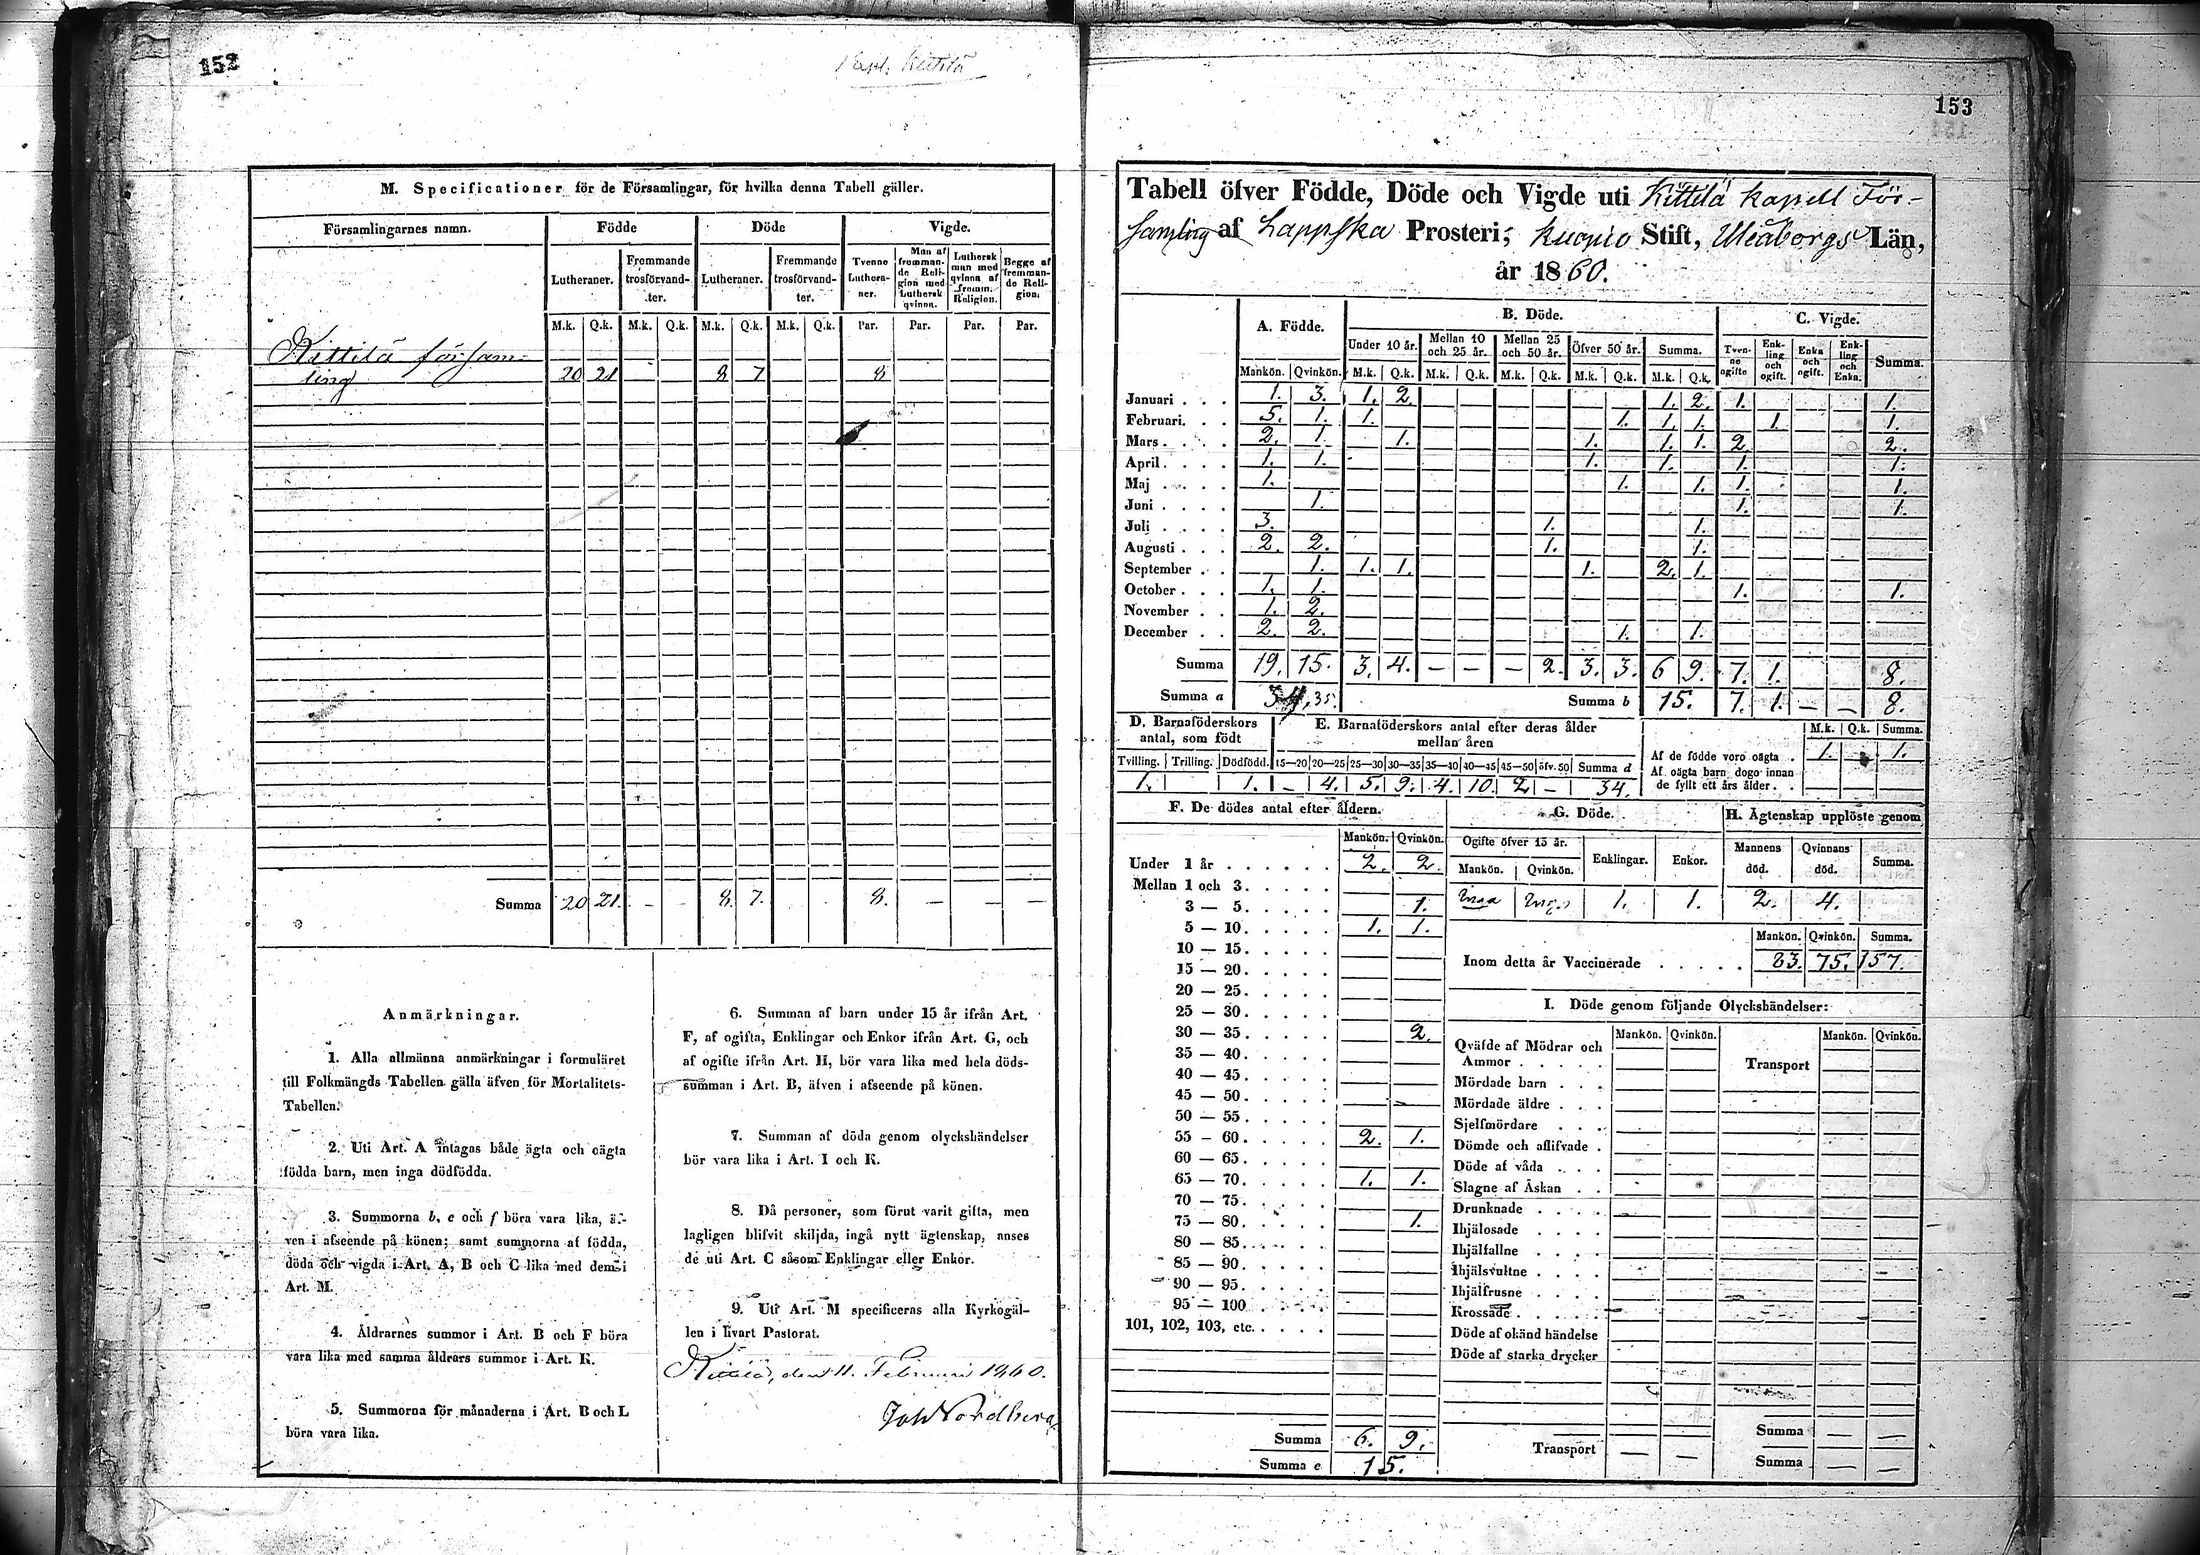 152
Kapl. Kittilä
M. Specificationer för de Församlingar, för hvilka denna Tabell gäller.
Församlingarnes namn. | Födde | Döde | Vigde.
Lutheraner. | Fremmande trosförvandter. | Lutheraner. | Fremmande trosförvandter. | Tvenne Lutheraner. | Man af fremmande Religion med Luthersk qvinna. | Luthersk man med qvinna af fremm. Religion. | Begge af fremmande Religion.
M.k. | Q.k. | M.k. | Q.k. | M.k. | Q.k. | M.k. | Q.k. | Par. | Par. | Par. | Par.
Kittilä försam-
ling | 20 | 21 | 8 | 7 | 8
Summa | 20 | 21. | - | - | 8. | 7. | 8. | — | — | —
Anmärkningar.
1. Alla allmänna anmärkningar i formuläret
till Folkmängds Tabellen gälla äfven för Mortalitets-
Tabellen.
2. Uti Art. A intagas både ägta och oägta
födda barn, men inga dödfödda.
3. Summorna b, e och f böra vara lika, äf-
ven i afseende på könen; samt summorna af födda,
döda och vigda i Art. A, B och C lika med dem i
Art. M.
4. Åldrarnes summor i Art. B och F böra
vara lika med samma åldrars summor i Art. K.
5. Summorna för månaderna i Art. B och L
böra vara lika.
6. Summan af barn under 15 år ifrån Art.
F, af ogifta, Enklingar och Enkor ifrån Art. G, och
af ogifte ifrån Art. H, bör vara lika med hela döds-
summan i Art. B, äfven i afseende på könen.
7. Summan af döda genom olyckshändelser
bör vara lika i Art. I och K.
8. Då personer, som förut varit gifta, men
lagligen blifvit skiljda, ingå nytt ägtenskap, anses
de uti Art. C såsom Enklingar eller Enkor.
9. Uti Art. M specificeras alla Kyrkogäl-
len i hvart Pastorat.
Kittilä, den 11. Februari 1860.
Joh Nordberg
153
Tabell öfver Födde, Döde och Vigde uti Kittilä kapell För-
samling af Lappska Prosteri, Kuopio Stift, Uleåborgs Län,
år 1860.
A. Födde. | B. Döde. | C. Vigde.
Under 10 år. | Mellan 10 och 25 år. | Mellan 25 och 50 år. | Öfver 50 år. | Summa. | Tvenne ogifte | Enkling och ogift. | Enka och ogift. | Enkling och Enka. | Summa.
Mankön. | Qvinkön. | M.k. | Q.k. | M.k. | Q.k. | M.k. | Q.k. | M.k. | Q.k. | M.k. | Q.k.
Januari . . . 1. | 3. | 1. | 2. | 1. | 2. | 1. | 1.
Februari. . . 5. | 1. | 1. | 1. | 1. | 1. | 1. | 1.
Mars . . . . 2. | 1. | 1. | 1. | 1. | 1. | 2. | 2.
April . . . . 1. | 1. | 1. | 1. | 1. | 1.
Maj . . . . 1. | 1. | 1. | 1. | 1.
Juni . . . . 1. | 1. | 1.
Juli . . . . 3. | 1. | 1.
Augusti . . . 2. | 2. | 1. | 1.
September . . 1. | 1. | 1. | 1. | 2. | 1.
October . . . 1. | 1. | 1. | 1.
November . . 1. | 2.
December . . 2. | 2. | 1. | 1.
Summa | 19. | 15. | 3. | 4. | — | — | — | 2. | 3. | 3. | 6 | 9. | 7. | 1. | 8.
Summa a | 35. | Summa b | 15. | 7. | 1. | — | — | 8.
D. Barnaföderskors antal, som födt | E. Barnaföderskors antal efter deras ålder mellan åren | M.k. | Q.k. | Summa.
Tvilling. | Trilling. | Dödfödd. | 15—20 | 20—25 | 25—30 | 30—35 | 35—40 | 40—45 | 45—50 | öfv. 50 | Summa d
1. | 1. | — | 4. | 5. | 9. | 4. | 10. | 2 | — | 34.
Af de födde voro oägta . 1. | 1.
Af oägta barn dogo innan
de fyllt ett års ålder . .
F. De dödes antal efter åldern.
Mankön. | Qvinkön.
Under 1 år . . . . . . 2. | 2.
Mellan 1 och 3. . . . .
3 — 5. . . . . 1.
5 — 10. . . . . 1. | 1.
10 — 15. . . . .
15 — 20. . . . .
20 — 25. . . . .
25 — 30. . . . .
30 — 35. . . . . 2.
35 — 40. . . . .
40 — 45. . . . .
45 — 50. . . . .
50 — 55. . . . .
55 — 60. . . . . 2. | 1.
60 — 65. . . . .
65 — 70. . . . . 1. | 1.
70 — 75. . . . .
75 — 80. . . . . 1.
80 — 85. . . . .
85 — 90. . . . .
90 — 95. . . . .
95 — 100 . . . .
101, 102, 103, etc. . . . .
Summa | 6. | 9.
Summa e | 15.
G. Döde. | H. Ägtenskap upplöste genom
Ogifte öfver 15 år. | Enklingar. | Enkor. | Mannens död. | Qvinnans död. | Summa.
Mankön. | Qvinkön.
inga | inga | 1. | 1. | 2. | 4.
Mankön. | Qvinkön. | Summa.
Inom detta år Vaccinerade . . . . . 83. | 75. | 157.
I. Döde genom följande Olyckshändelser:
Mankön. | Qvinkön. | Mankön. | Qvinkön.
Qväfde af Mödrar och
Ammor . . . . . | Transport
Mördade barn . . .
Mördade äldre . . .
Sjelfmördare . . .
Dömde och aflifvade .
Döde af våda . . .
Slagne af Åskan . .
Drunknade . . . .
Ihjälosade . . . .
Ihjälfallne . . . .
Ihjälsvultne . . . .
Ihjälfrusne . . . .
Krossade . . . . .
Döde af okänd händelse
Döde af starka drycker
Summa — | —
Transport — | — | Summa — | —